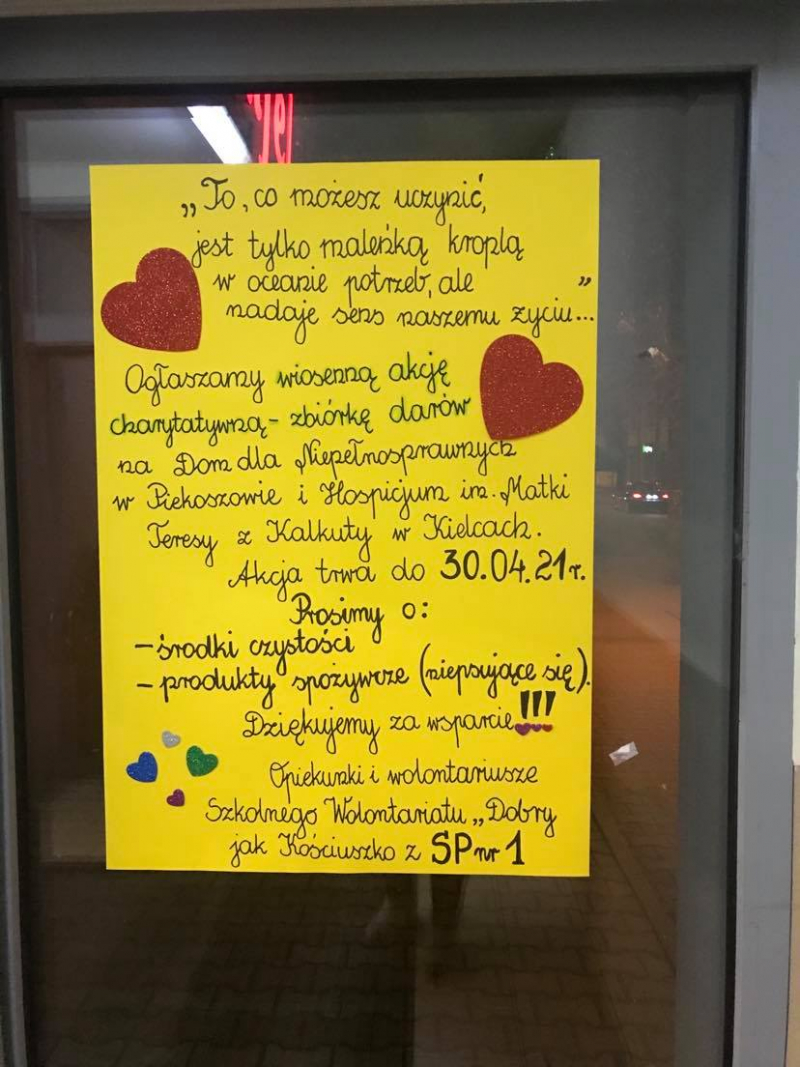 „To, co możesz uczynić,
jest tylko maleńką kroplą
w oceanie potrzeb, ale
nadaje sens naszemu życiu..."
Ogłaszamy wiosenną akcję
charytatywną - zbiórkę darów
na Dom dla Niepełnosprawnych
w Piekoszowie i Hospicjum im. Matki
Teresy z Kalkuty w Kielcach.
Akcja trwa do 30.04.21r.
Prosimy o:
- środki czystości
- produkty spożywcze (niepsujące się).
Dziękujemy za wsparcie!!!
Opiekunki i wolontariusze
Szkolnego Wolontariatu „Dobry
jak Kościuszko z SP nr 1